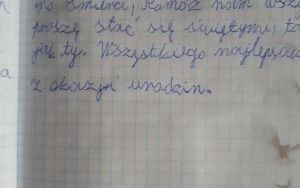 po śmierci, pomóż nam wszy
proszę stać się świętymi, ta
jak ty. Wszystkiego najlepsze
z okazji urodzin.